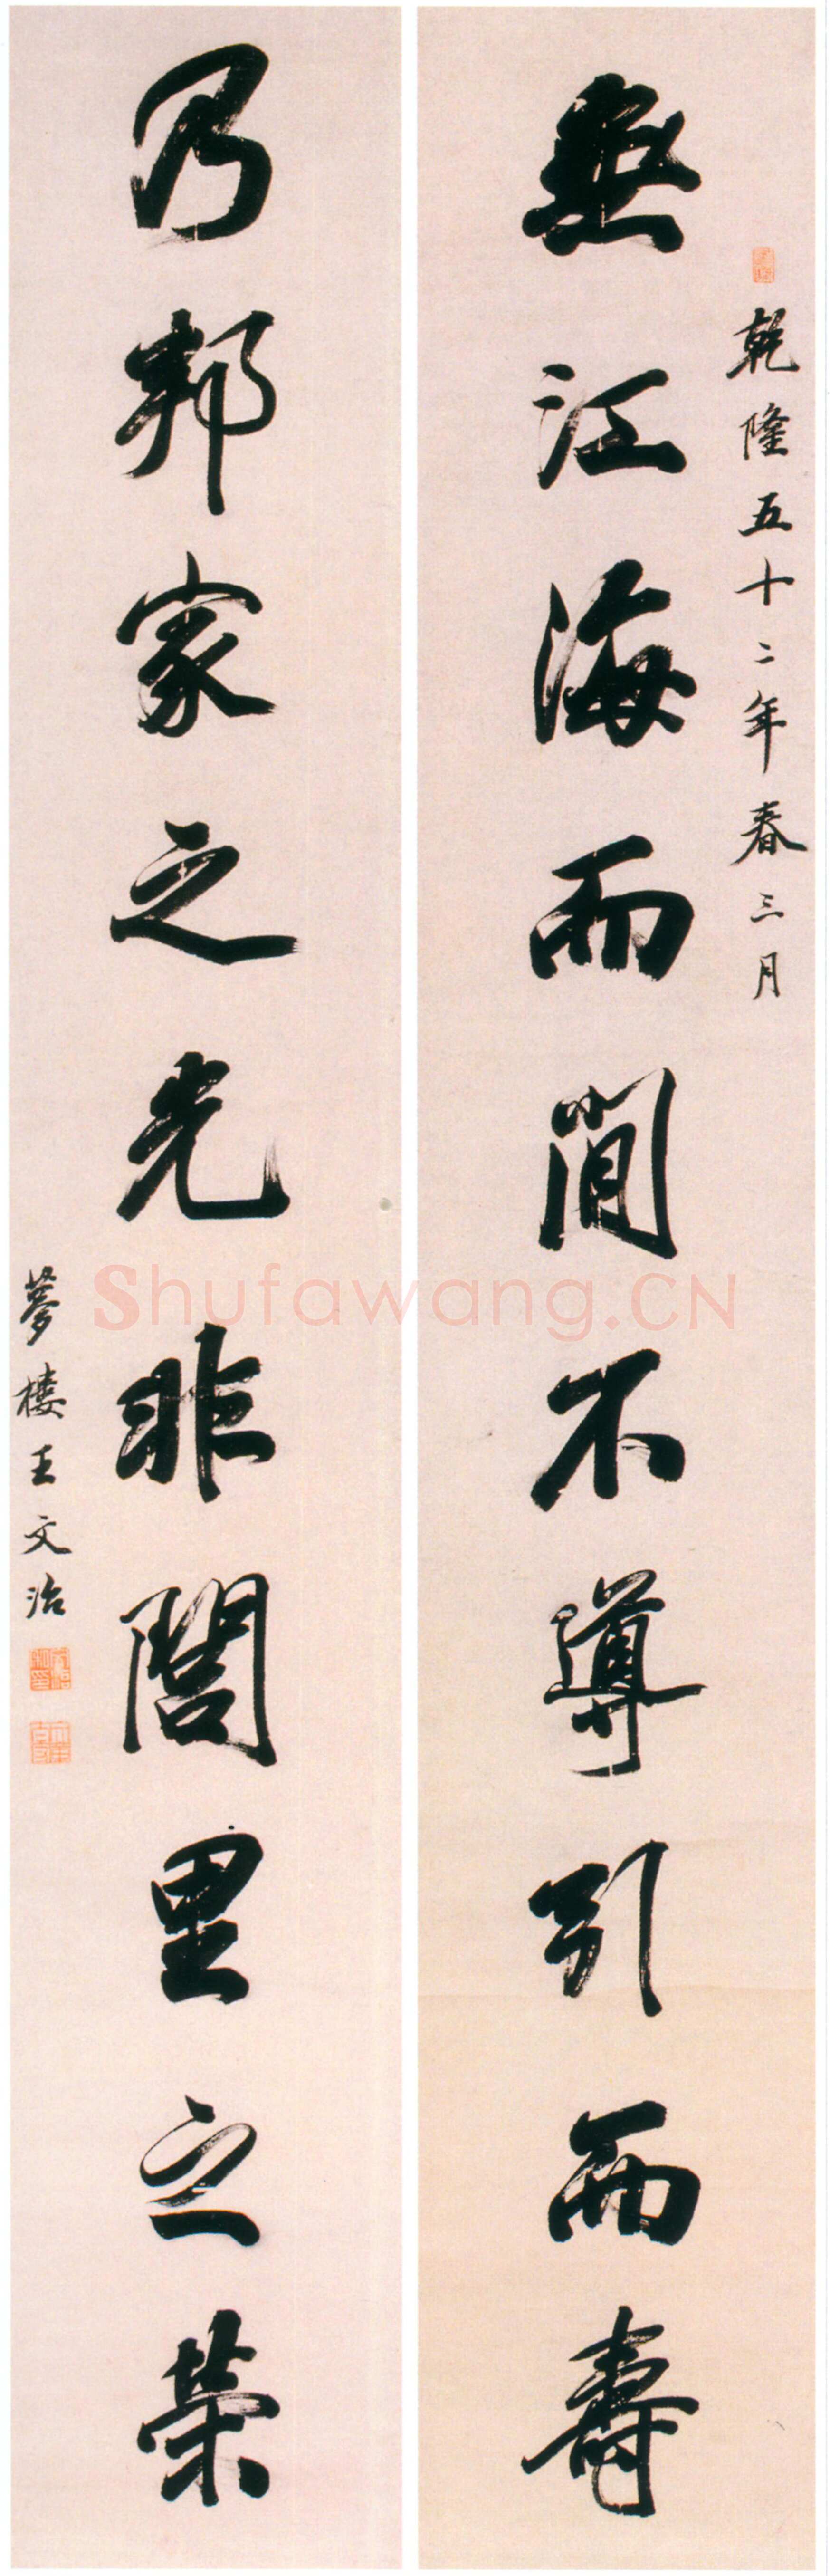 乾隆五十二年春三月
無江海而閒不導引而壽
乃邦家之光非閭里之榮
夢樓王文治
Shufawang.CN